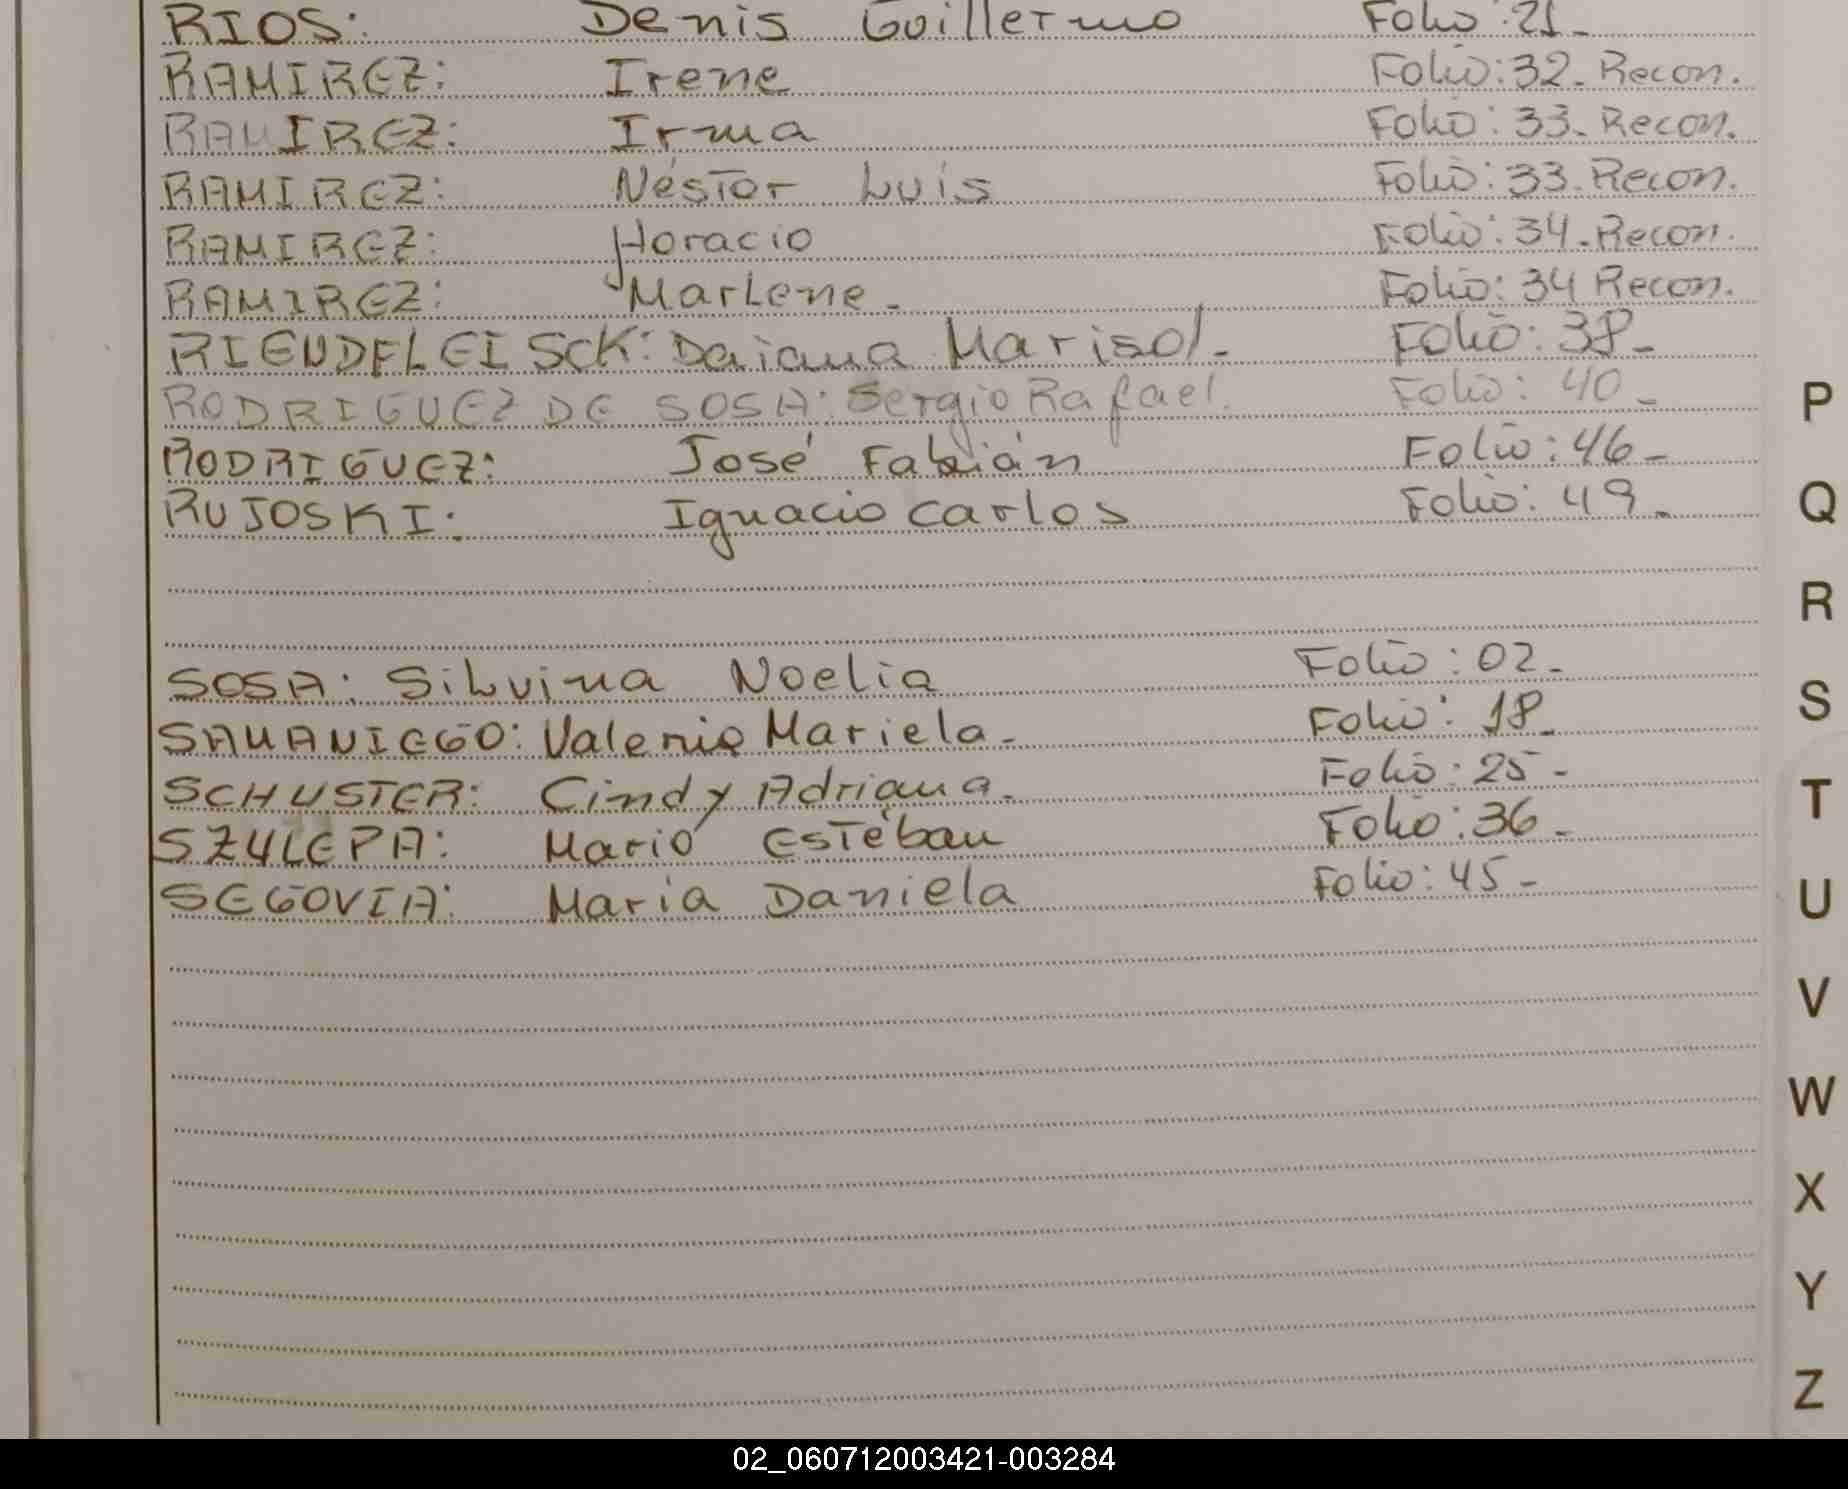 RIOS: Denis Guillermo Folio: 21_
RAMIREZ: Irene Folio: 32_ Recon.
RAMIREZ: Irma Folio: 33_ Recon.
RAMIREZ: Néstor Luis Folio: 33_ Recon.
RAMIREZ: Horacio Folio: 34_ Recon.
RAMIREZ: Marlene_ Folio: 34 Recon.
RIENDFLEISCK: Daiana Marisol_ Folio: 38_
RODRIGUEZ DE SOSA: Sergio Rafael. Folio: 40_
RODRIGUEZ: José Fabián Folio: 46_
RUJOSKI: Ignacio Carlos Folio: 49_
SOSA: Silvina Noelia Folio: 02_
SAMANIEGO: Valeria Mariela_ Folio: 18_
SCHUSTER: Cindy Adriana_ Folio: 25_
SZULEPA: Mario Estéban Folio: 36_
SEGOVIA: María Daniela Folio: 45_
P
Q
R
S
T
U
V
W
X
Y
Z
02_060712003421-003284